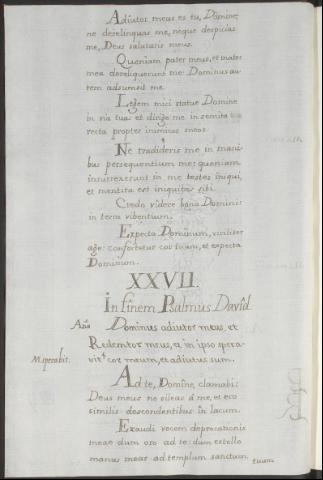 Adiutor meus es tu, Domine,
ne derelinquas me, neque despicias
me, Deus salutaris meus.
Quoniam pater meus, et mater
mea dereliquerunt me: Dominus au
tem adsumsit me.
Legem mici statue Domine
in via tua: et dirige me in semita
recta propter inimicos meos.
Ne tradideris me in mani
bus persequentium me: quoniam
insurrexerunt in me testes iniqui,
et mentita est iniquitas sibi.
Credo videre bona Domini
in terra viventium.
Expecta Dominum, viriliter
age: confortetur cor tuum, et expecta
Dominum.
XXVII.
In finem Psalmus David.
Dominus adiutor meus, et
Redemtor meus, & in ipso spera-
vit cor meum, et adiutus sum.
Ad te, Domine, clamabi:
Deus meus ne sileas á me, et ero
similis descendentibus in lacum.
Exaudi vocem deprecationis
meae dum oro ad te: dum extollo
manus meas ad templum sanctum
tuum.